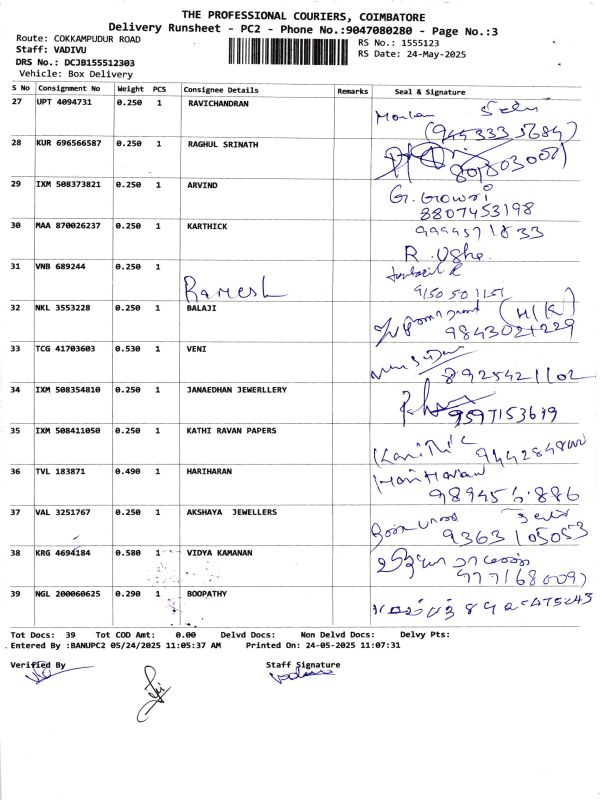 THE PROFESSIONAL COURIERS, COIMBATORE
Delivery Runsheet - PC2 - Phone No.:9047080280 - Page No.:3
Route: COKKAMPUDUR ROAD
Staff: VADIVU
DRS No.: DCJB155512303
Vehicle: Box Delivery
RS No.: 1555123
RS Date: 24-May-2025
S No Consignment No Weight PCS Consignee Details Remarks Seal & Signature
27 UPT 4094731 0.250 1 RAVICHANDRAN
28 KUR 696566587 0.250 1 RAGHUL SRINATH
29 IXM 508373821 0.250 1 ARVIND G. Gowri
8807453198
30 MAA 870026237 0.250 1 KARTHICK
R. Usha
31 VNB 689244 0.250 1 Ramesh
9150501151
32 NKL 3553228 0.250 1 BALAJI (H/K)
9843021229
33 TCG 41703603 0.530 1 VENI
8925421102
34 IXM 508354810 0.250 1 JANAEDHAN JEWERLLERY
9597153619
35 IXM 508411050 0.250 1 KATHI RAVAN PAPERS
36 TVL 183871 0.490 1 HARIHARAN Hari Haran
37 VAL 3251767 0.250 1 AKSHAYA JEWELLERS
9363105053
38 KRG 4694184 0.580 1 VIDYA KAMANAN
39 NGL 200060625 0.290 1 BOOPATHY
Tot Docs: 39 Tot COD Amt: 0.00 Delvd Docs: Non Delvd Docs: Delvy Pts:
Entered By :BANUPC2 05/24/2025 11:05:37 AM Printed On: 24-05-2025 11:07:31
Verified By Staff Signature